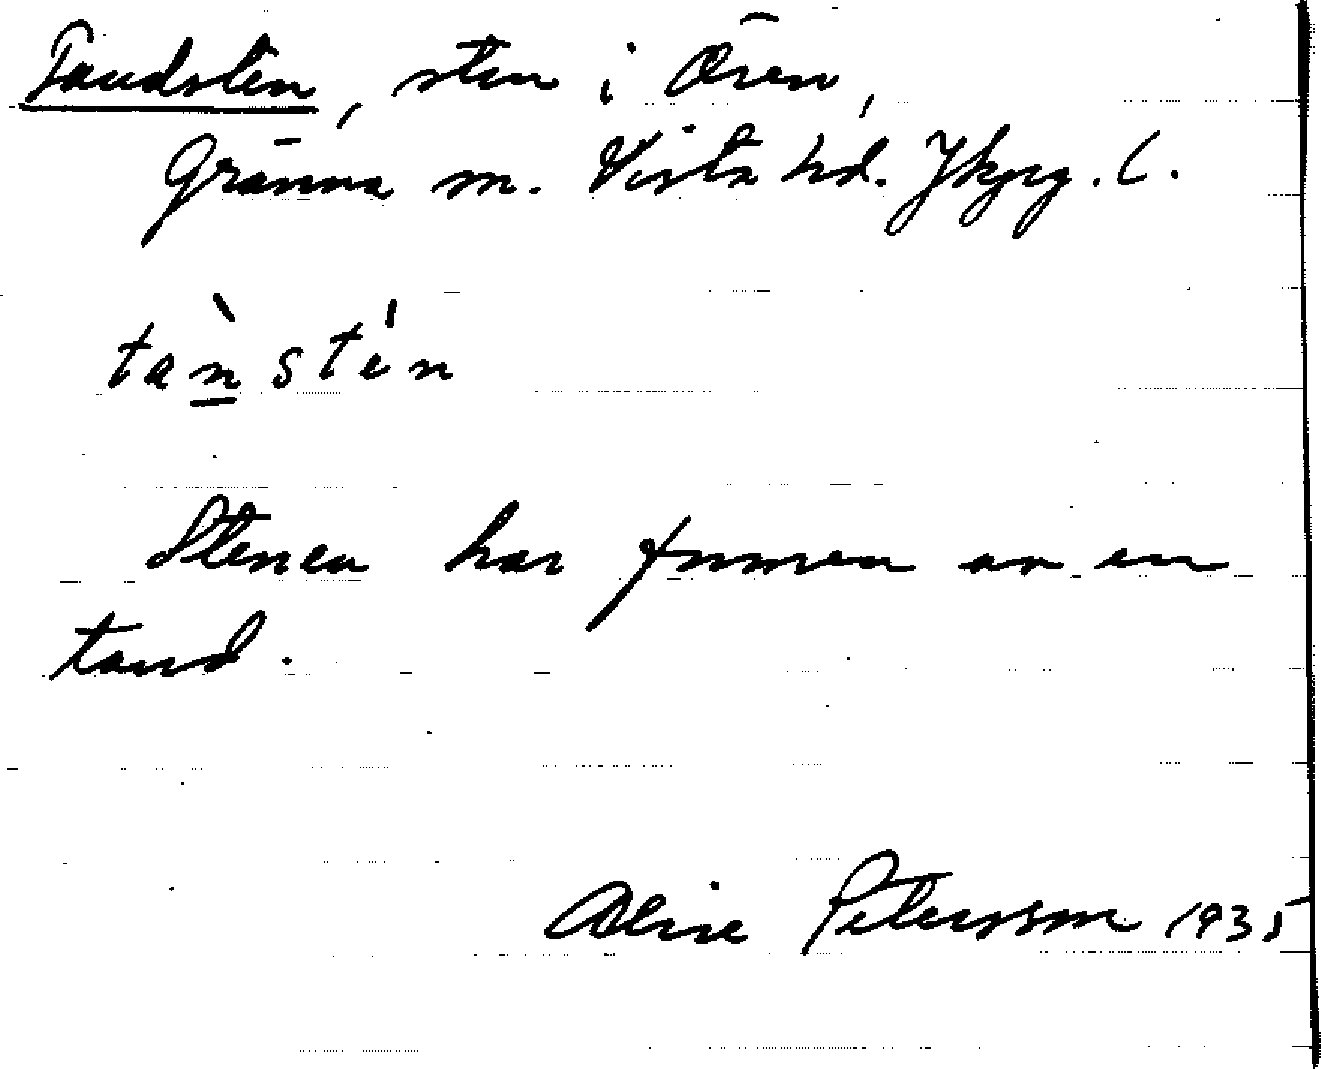 Tandsten, sten i Ören,
Gränna sn. Vista hd. Jkpg. l.
taǹ̲sté́n
Stenen har formen av en
tand.
Alice Petersson 1935